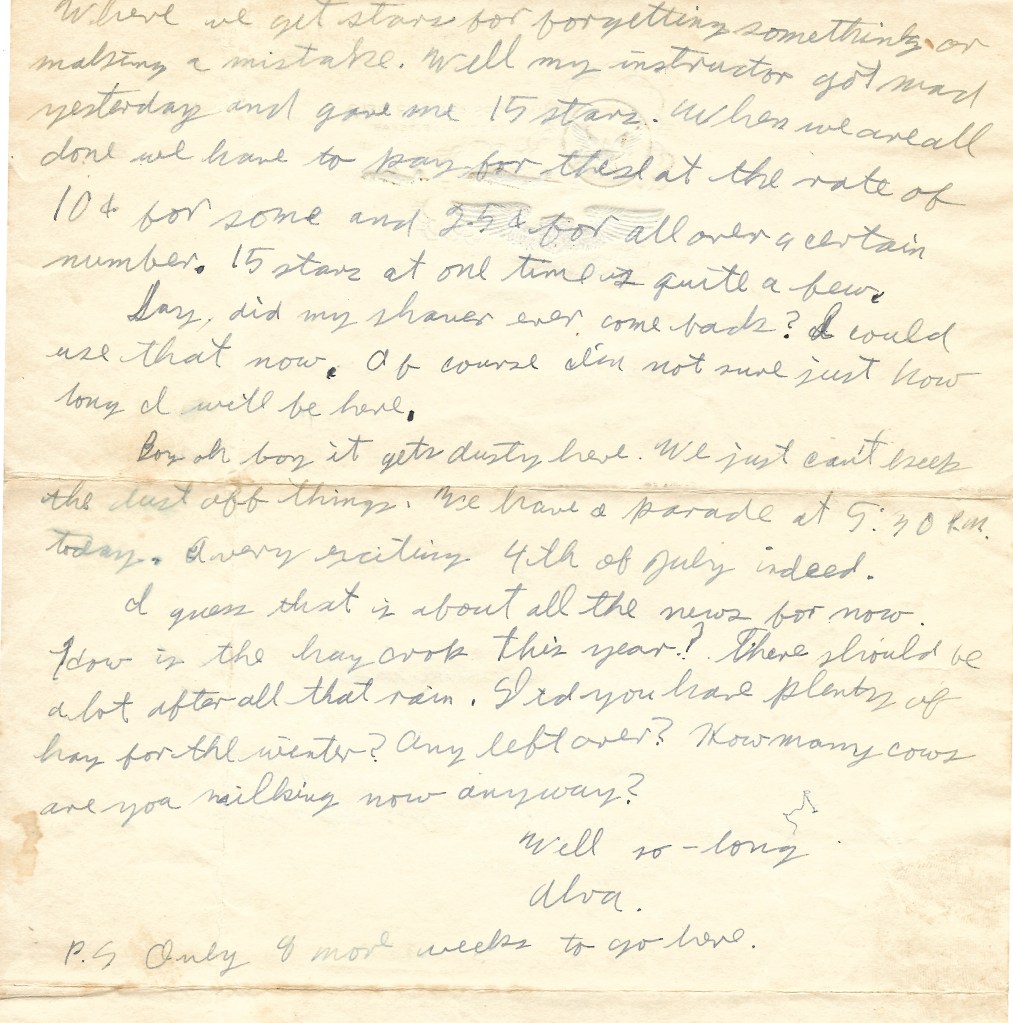 Where we get stars for forgetting something or
making a mistake. Well my instructor got mad
yesterday and gave me 15 stars. When we are all
done we have to pay for these at the rate of
10¢ for some and 25¢ for all over a certain
number. 15 stars at one time is quite a few.
Say, did my shaver ever come back? I could
use that now. Of course I'm not sure just how
long I will be here.
Boy oh boy it gets dusty here. We just can't keep
the dust off things. We have a parade at 9:30 A.M.
today. A very exciting 4th of July indeed.
I guess that is about all the news for now.
How is the hay crop this year? There should be
a lot after all that rain. Did you have plenty of
hay for the winter? Any left over? How many cows
are you milking now anyway?
Well so-long
Alva.
P.S Only 8 more weeks to go here.